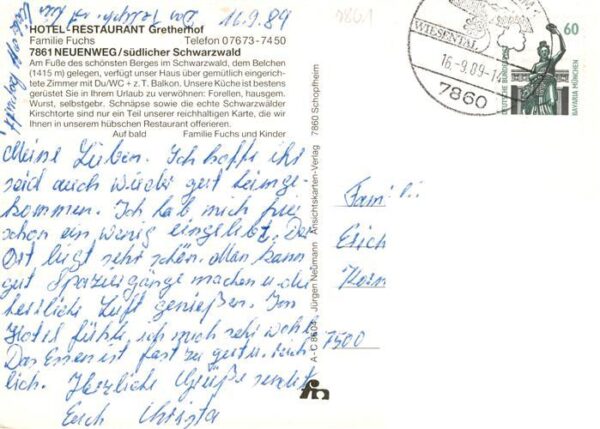 Den 16.9.89
HOTEL-RESTAURANT Gretherhof
Familie Fuchs Telefon 07673-7450
7861 NEUENWEG/südlicher Schwarzwald
Am Fuße des schönsten Berges im Schwarzwald, dem Belchen
(1415 m) gelegen, verfügt unser Haus über gemütlich eingerich-
tete Zimmer mit Du/WC + z.T. Balkon. Unsere Küche ist bestens
gerüstet Sie in Ihrem Urlaub zu verwöhnen: Forellen, hausgem.
Wurst, selbstgebr. Schnäpse sowie die echte Schwarzwälder
Kirschtorte sind nur ein Teil unserer reichhaltigen Karte, die wir
Ihnen in unserem hübschen Restaurant offerieren.
Auf bald Familie Fuchs und Kinder
Meine Lieben. Ich hoffe ihr
seid auch wieder gut heimge-
kommen. Ich hab mich hier
schon ein wenig eingelebt. Der
Ort liegt sehr schön. Man kann
gut Spaziergänge machen u. die
herrliche Luft genießen. Im
Hotel fühle ich mich sehr wohl.
Das Essen ist fast zu gut u. reich
lich. Herzliche Grüße sendet
Euch Christa
A-C 8604 Jürgen Neumann Ansichtskarten-Verlag 7860 Schopfheim
WIESENTAL
16.-9.89-14
7860
60
DEUTSCHE BUNDESPOST
BAVARIA MÜNCHEN
7861
Fami li
Erich
Korn
7500